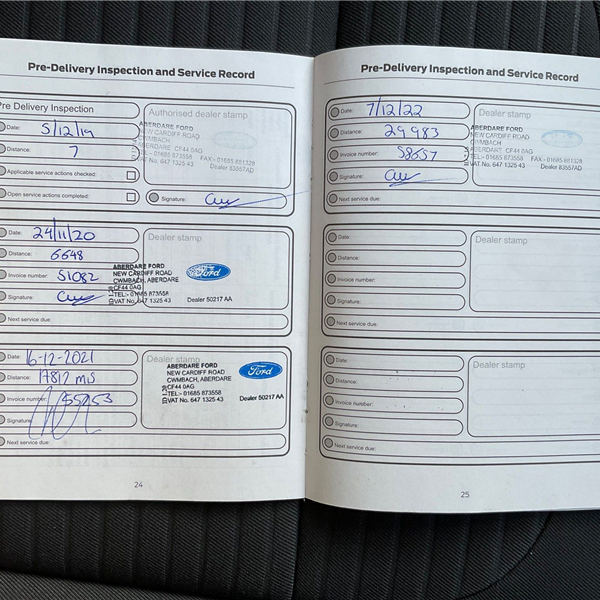 Pre-Delivery Inspection and Service Record
Pre Delivery Inspection
Date: 5/12/19
Distance: 7
Applicable service actions checked:
Open service actions completed:
Authorised dealer stamp
ABERDARE FORD
NEW CARDIFF ROAD
CWMBACH
ABERDARE CF44 0AG
TEL:- 01685 873558 FAX:- 01685 881328
VAT No. 647 1325 43 Dealer 83557AD
Signature:
Date: 24/11/20
Distance: 6648
Invoice number: 51082
Signature:
Next service due:
Dealer stamp
ABERDARE FORD
NEW CARDIFF ROAD
CWMBACH, ABERDARE
CF44 0AG
TEL:- 01685 873558
VAT No. 647 1325 43
Ford
Dealer 50217 AA
Date: 16-12-2021
Distance: 17812 mls
Invoice number:
Signature:
Next service due:
Dealer stamp
ABERDARE FORD
NEW CARDIFF ROAD
CWMBACH, ABERDARE
CF44 0AG
TEL:- 01685 873558
VAT No. 647 1325 43
Ford
Dealer 50217 AA
24
Pre-Delivery Inspection and Service Record
Date: 7/12/22
Distance: 29983
Invoice number: 58657
Signature:
Next service due:
Dealer stamp
ABERDARE FORD
NEW CARDIFF ROAD
CWMBACH
ABERDARE CF44 0AG
TEL:- 01685 873558 FAX:- 01685 881328
VAT No. 647 1325 43 Dealer 83557AD
Date:
Distance:
Invoice number:
Signature:
Next service due:
Dealer stamp
Date:
Distance:
Invoice number:
Signature:
Next service due:
Dealer stamp
25